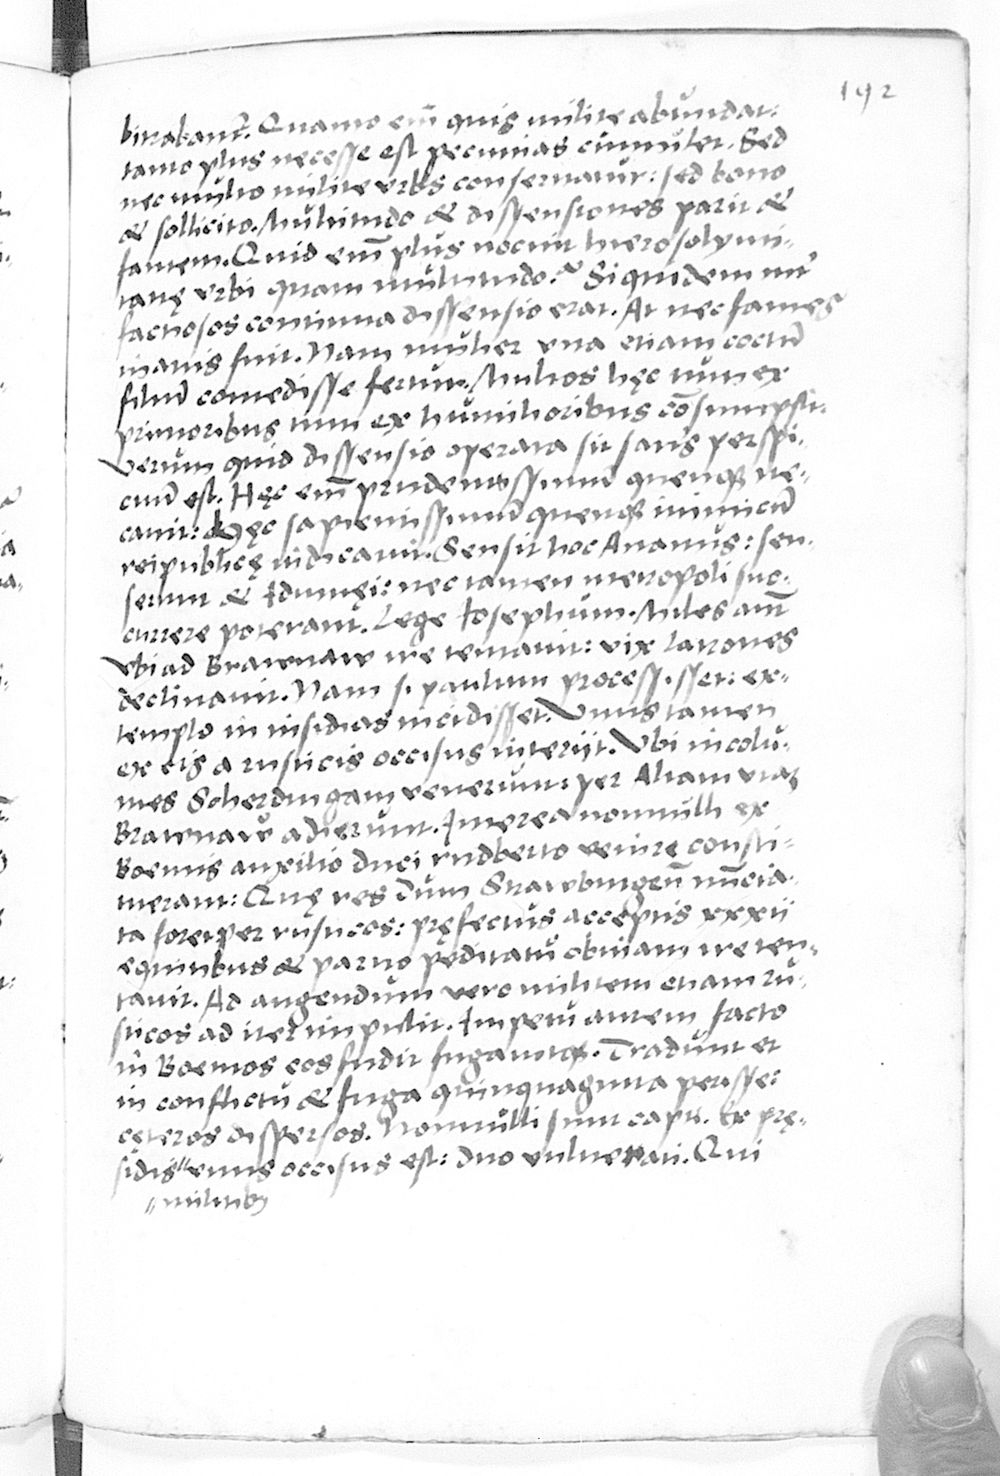 192
bitrabant̄. Quanto em̄ quis milite abundat:
tanto plus necesse est pecunias cumulet. Sed
nec multo milite urbs conservatur: sed bono
& sollicito. Multitudo & dissensiones parit &
famem. Quid em̄ plus nocuit hierosolymi-
tanę urbi quam multitudo? Siquidem int̄
factiosos continua dissensio erat. At nec fames
inanis fuit. Nam mulier una etiam coctū
filiū comedisse fertur. Multos hęc tum ex
primoribus tum ex humilioribus cōsumpsit.
Verum quid dissensio operata sit satis perspi-
cuū est. Hęc em̄ prudentissimū quenq ne-
cavit: Hęc sapientissimū quenq inimicū
reipublicę iudicavit. Sensit hoc Ananus: sen-
serunt & Idumęi: nec tamen metropoli suc-
currere poterant. Lege Iosephum. Miles aut̄
ubi ad Brawnaw ire tentavit: vix latrones
declinavit. Nam si paulum processisset: ex-
templo in insidias incidisset. Unus tamen
ex eis a rusticis occisus interiit. Ubi incolu-
mes Scherdingam venerunt: per aliam viā
Brawnaw adierunt. Interea nonnulli ex
Boemis auxilio duci rudberto venire consti-
tuerant: Quę res dum Strawbingeñ nūcia-
ta foret per rusticos: pręfectus acceptis xxxii
equitibus & parvo peditatu obviam ire ten-
tavit. Ad augendum vero militem etiam ru-
sticos ad iter impulit. Impetu autem facto
in Boemos eos fudit fugavitq. Tradunt et
in conflictu & fuga quinquaginta perisse:
cęteros dispersos. Nonnulli sunt capti. Ex prę-
sidis" unus occisus est: duo vulnerati. Qui
"militib9